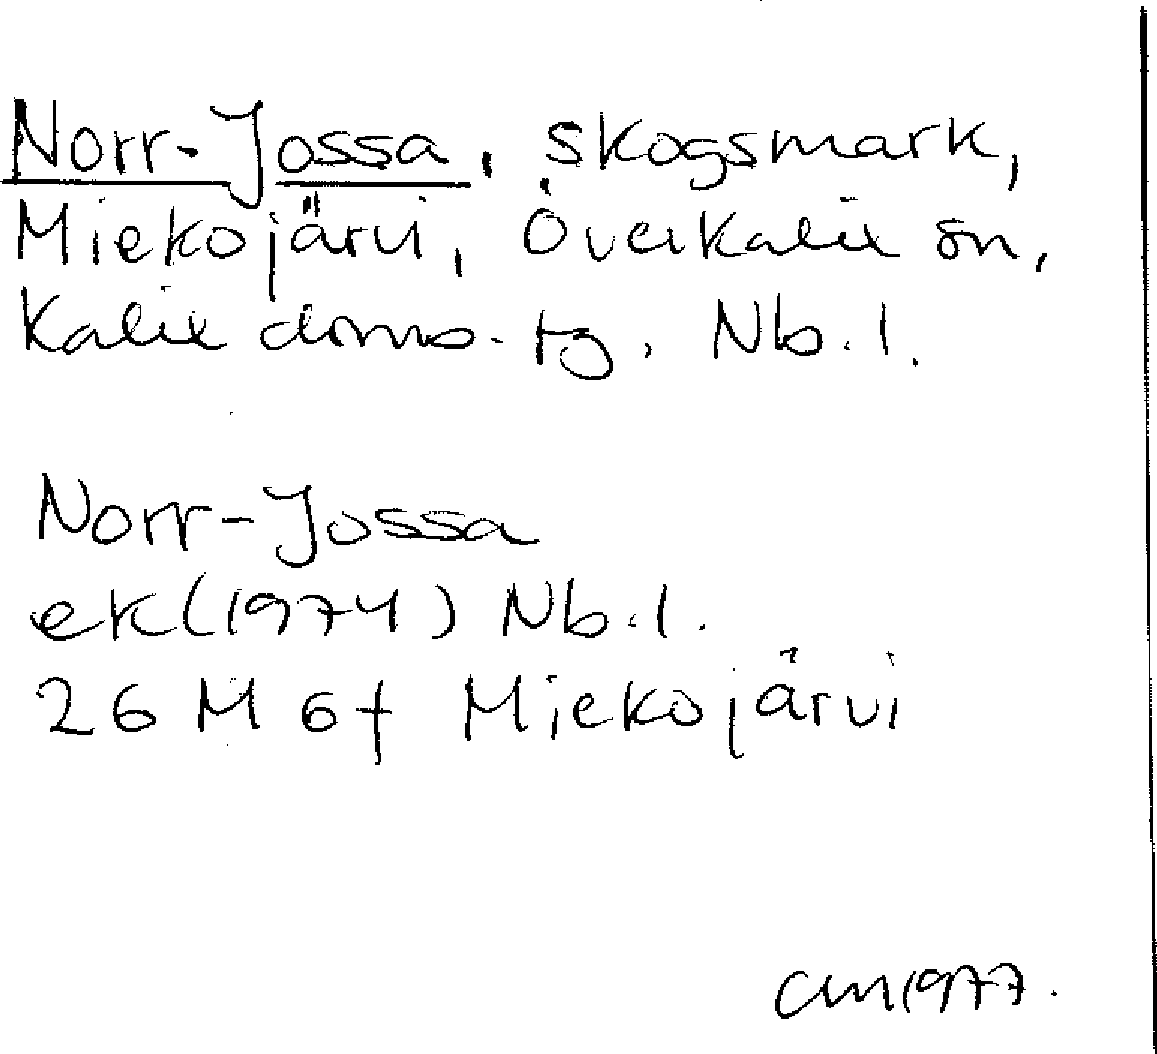 Norr-Jossa, skogsmark,
Miekojärvi, Överkalix sn,
Kalix doms. tg, Nb. l.
Norr-Jossa
ek (1974) Nb. l.
26 M 6f Miekojärvi
CM 1977.